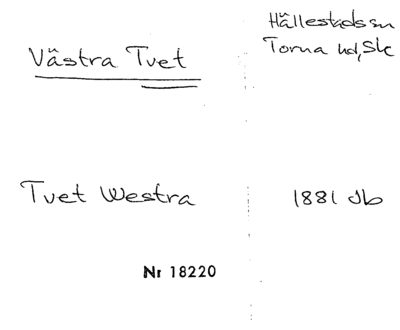 Hällestads sn
Västra Tvet
Torna hd, Sk
Tvet Westra
1881 Jb
Nr 18220